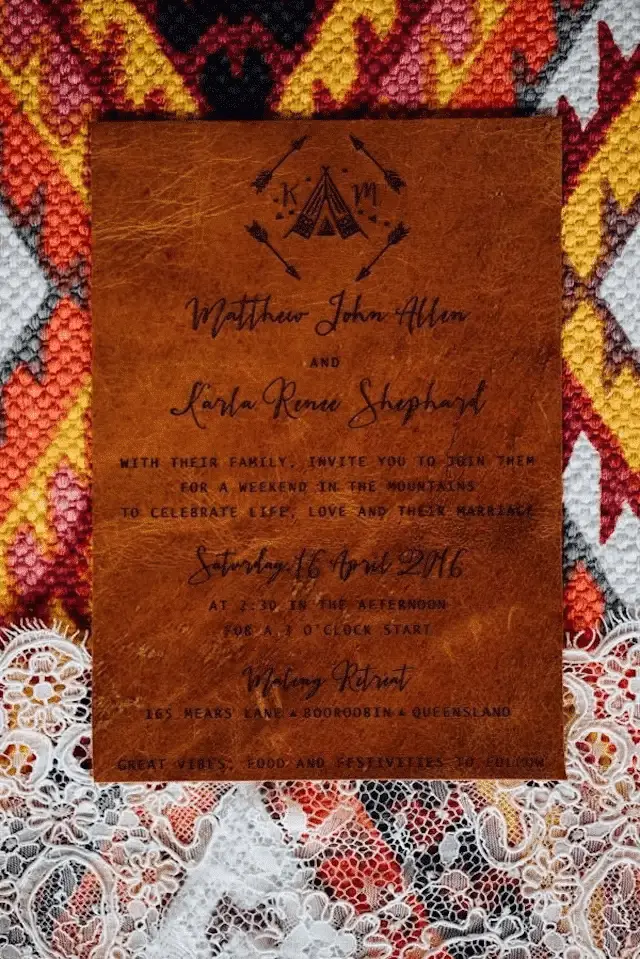 K M
Matthew John Allen
AND
Karla Renee Shephard
WITH THEIR FAMILY, INVITE YOU TO JOIN THEM
FOR A WEEKEND IN THE MOUNTAINS
TO CELEBRATE LIFE, LOVE AND THEIR MARRIAGE
Saturday, 16 April 2016
AT 2:30 IN THE AFTERNOON
FOR A 3 O'CLOCK START
Maleny Retreat
165 MEARS LANE BOOROOBIN QUEENSLAND
GREAT VIBES, FOOD AND FESTIVITIES TO FOLLOW